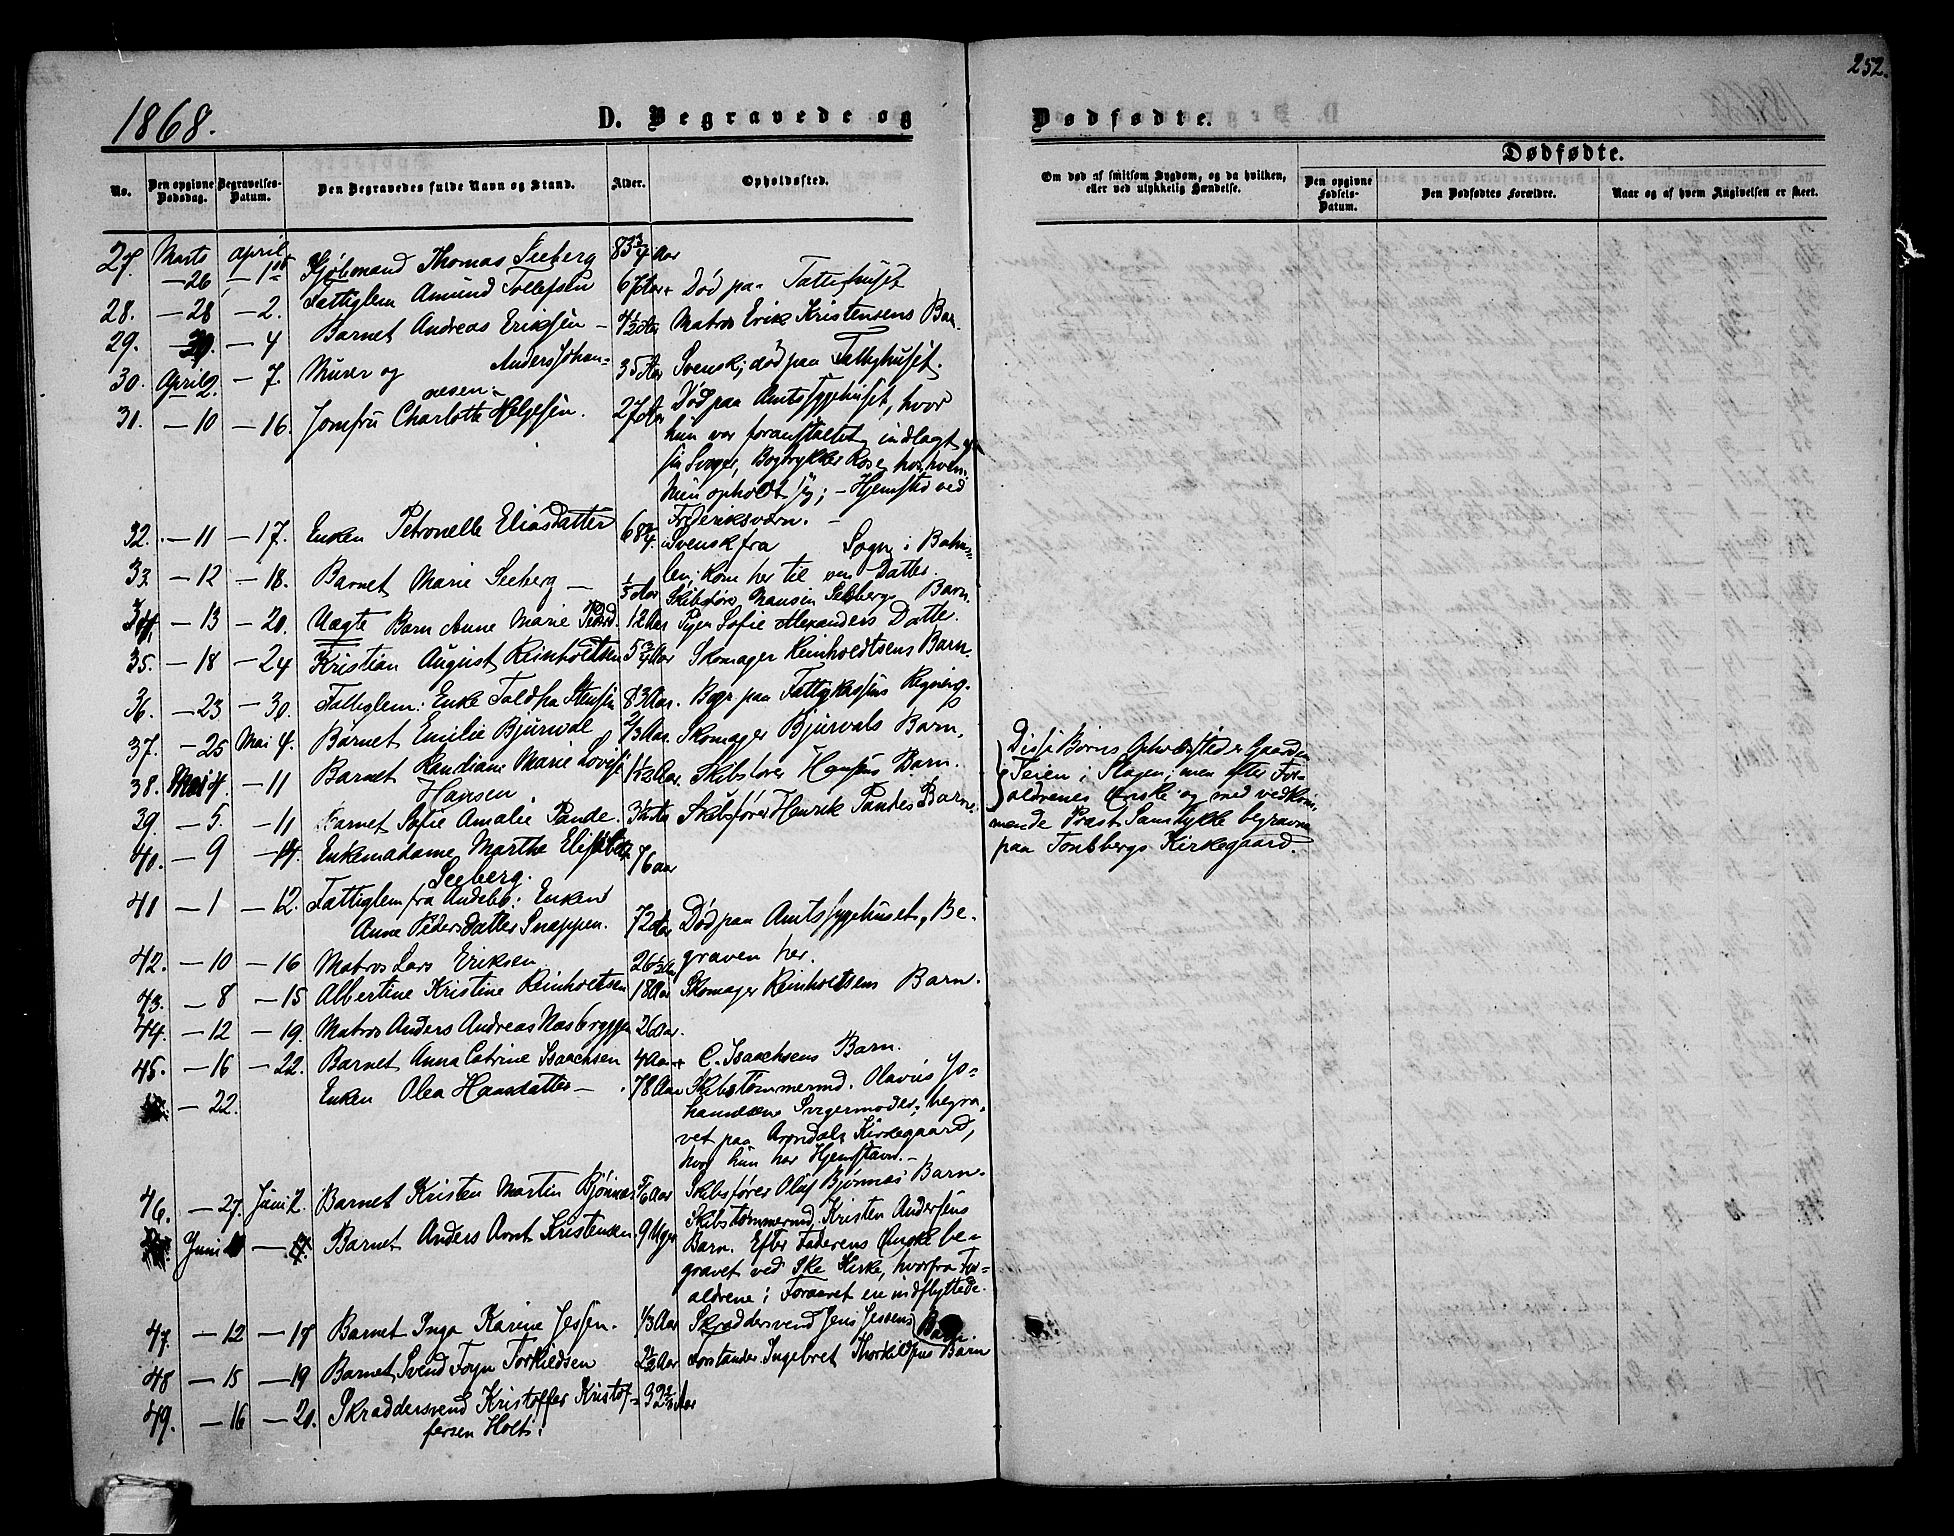 252.
1868.
D. Begravede og
Dødfødte.
Dødfødte.
No.
Den opgivne Dødsdag.
Begravelses-Datum.
Den Begravedes fulde Navn og Stand.
Alder.
Opholdssted.
Om død af smitsom Sygdom, og da hvilken, eller ved ulykkelig Hændelse.
Den opgivne Fødsels-Datum.
Den Dødfødtes Forældre.
Naar og af hvem Angivelsen er skeet.
27. Marts — 26 April — 1ste Kjøbmand Thomas Seeberg 83 3/4 Aar
28. — 28 — 2. Fattiglem Amund Tollefsen 67 Aar Død paa Fattighuset
29. — 4 Barnet Andreas Eriksen — 4 1/2 Aar Matros Erik Kristensens Barn.
30. April 2. — 7. Murer og Anders Johan-
nesen. 35 Aar Svensk; død paa Fattighuset.
31. — 10 — 16. Jomfru Charlotte Helgesen. 27 Aar Død paa Amtssygehuset, hvor
hun var foranstaltet indlagt af
sin Svoger, Bogtrykker Rose, hos hvem
hun opholdt sig; — Hjemsted ved
Frederiksværn. —
32. — 11 — 17. Enken Petronelle Eliasdatter 68 3/4 Svensk fra Sogn i Bahus-
len; kom her til en Datter.
33. — 12 — 18. Barnet Marie Seeberg — 1/3 Aar Skibsfører Seebergs Barn.
34. — 13 — 20. Uægte Barn Anne Marie 12 Aar Pigen Sofie Alexanders Datter.
35. — 18 — 24 Kristian August Reinholdtsen 5 3/4 Aar Skomager Reinholdtsens Barn.
36. — 23 — 30. Fattiglem: Enke 83 Aar. Begr. paa Fattigkassens Regning.
37. — 25 Mai 4. Barnet Emilie Bjurval 2/3 Aar. Skomager Bjurvals Barn.
38. Mai 4 — 11 Barnet Randiane Marie Lovise
Hansen 1 1/2 Aar Skibsfører Hansens Barn.
39. — 5. — 11 Barnet Sofie Amalie Pande. Skibsfører Henrik Pandes Barn.
Disse Børns Opholdssted er Gaarden
Teien i Slagen; men efter For-
ældrenes Ønske og med vedkom-
mende Præst Samtykke begravne
paa Tønsbergs Kirkegaard.
40. — 9 — 14. Enkemadame Marthe Elisabeth
Seeberg. 76 aar
41 — 1 — 12. Fattiglem fra Andebo: Enken
Anne Pedersdatter Snappen. 72 Aar Død paa Amtssygehuset, Be-
graven her.
42. — 10 — 16 Matros Lars Eriksen 26 1/2 Aar
43. — 8 — 15 Albertine Kristine Reinholtsen 18 Aar Skomager Reinholtsens Barn.
44. — 12 — 19. Matros Anders Andreas Næsbryggen 26 Aar.
45. — 16 — 22. Barnet Anna Catrine Isaachsen 4 Aar C. Isaachsens Barn.
— 22. Enken Olea Hansdatter — 78 Aar Skibstømmermd. Olavus Jo-
hannesens Svigermoder; begra-
vet paa Arendals Kirkegaard,
hvor hun har Hjemstavn. —
46. — 27. Juni 2. Barnet Kristen Martin Bjønnæs 5/6 Aar Skibsfører Oluf Bjønnæs' Barn.
Juni — Barnet Anders Arnt Kristensen. 9 Uger Skibstømmermd Kristen Andersens
Barn. Efter Faderens Ønske be-
gravet ved Kirke, hvorfra For-
ældrene i Foraaret ere indflyttede.
47. — 12 — 17 Barnet Inga Karine Jessen. 1/3 Aar Skræddersvend Jens Jessens Barn.
48 — 15 — 19 Barnet Svend Foyn Torkildsen 2 1/2 Aar Forstander Ingebret Thorkildsens Barn
49. — 16 — 20. Skræddersvend Kristoffer Kristof-
fersen Holt. 39 2/3 Aar